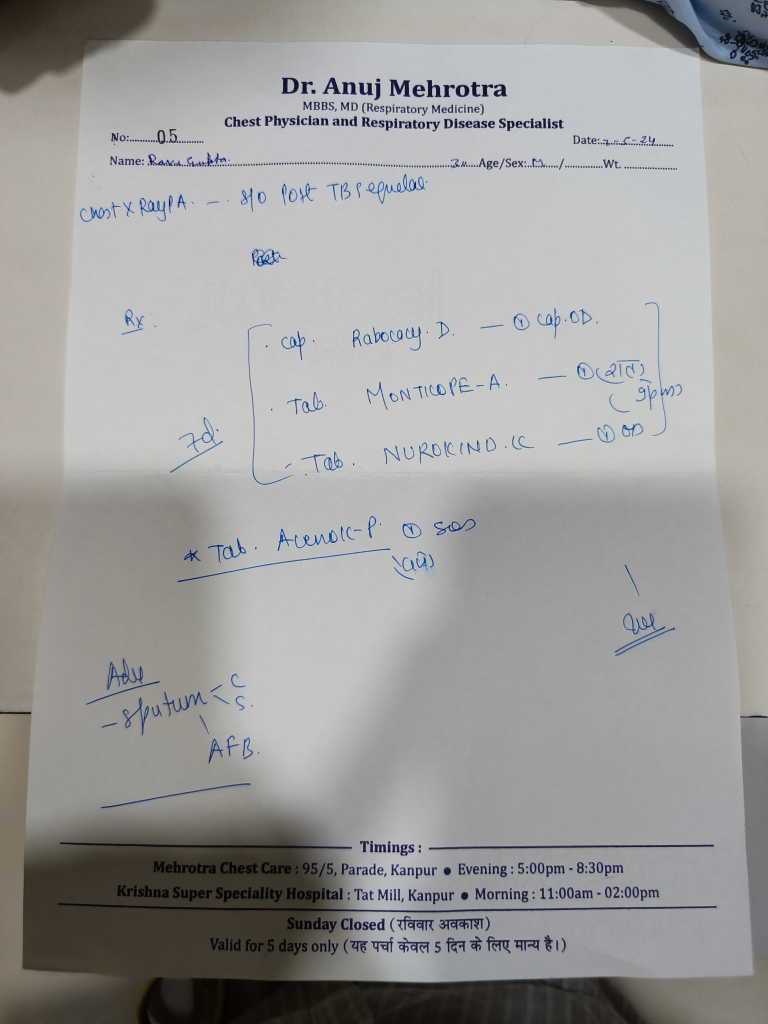 Dr. Anuj Mehrotra
MBBS, MD (Respiratory Medicine)
Chest Physician and Respiratory Disease Specialist
No:........05........ Date:..-5-24........
Name: ........ 30 Age/Sex: M /............Wt. ..................
Chest X Ray PA. - S/O Post TB Sequelae
Rx.
. Cap. D. — 1 cap. OD.
. Tab. MONTICOPE-A. — 1 (रात)
9pm
7d.
Tab. NUROKIND. — 1 OD
* Tab. -P. 1 SOS
Adv
- Sputum < C
S.
AFB.
Timings :
Mehrotra Chest Care : 95/5, Parade, Kanpur ● Evening : 5:00pm - 8:30pm
Krishna Super Speciality Hospital : Tat Mill, Kanpur ● Morning : 11:00am - 02:00pm
Sunday Closed (रविवार अवकाश)
Valid for 5 days only (यह पर्चा केवल 5 दिन के लिए मान्य है।)